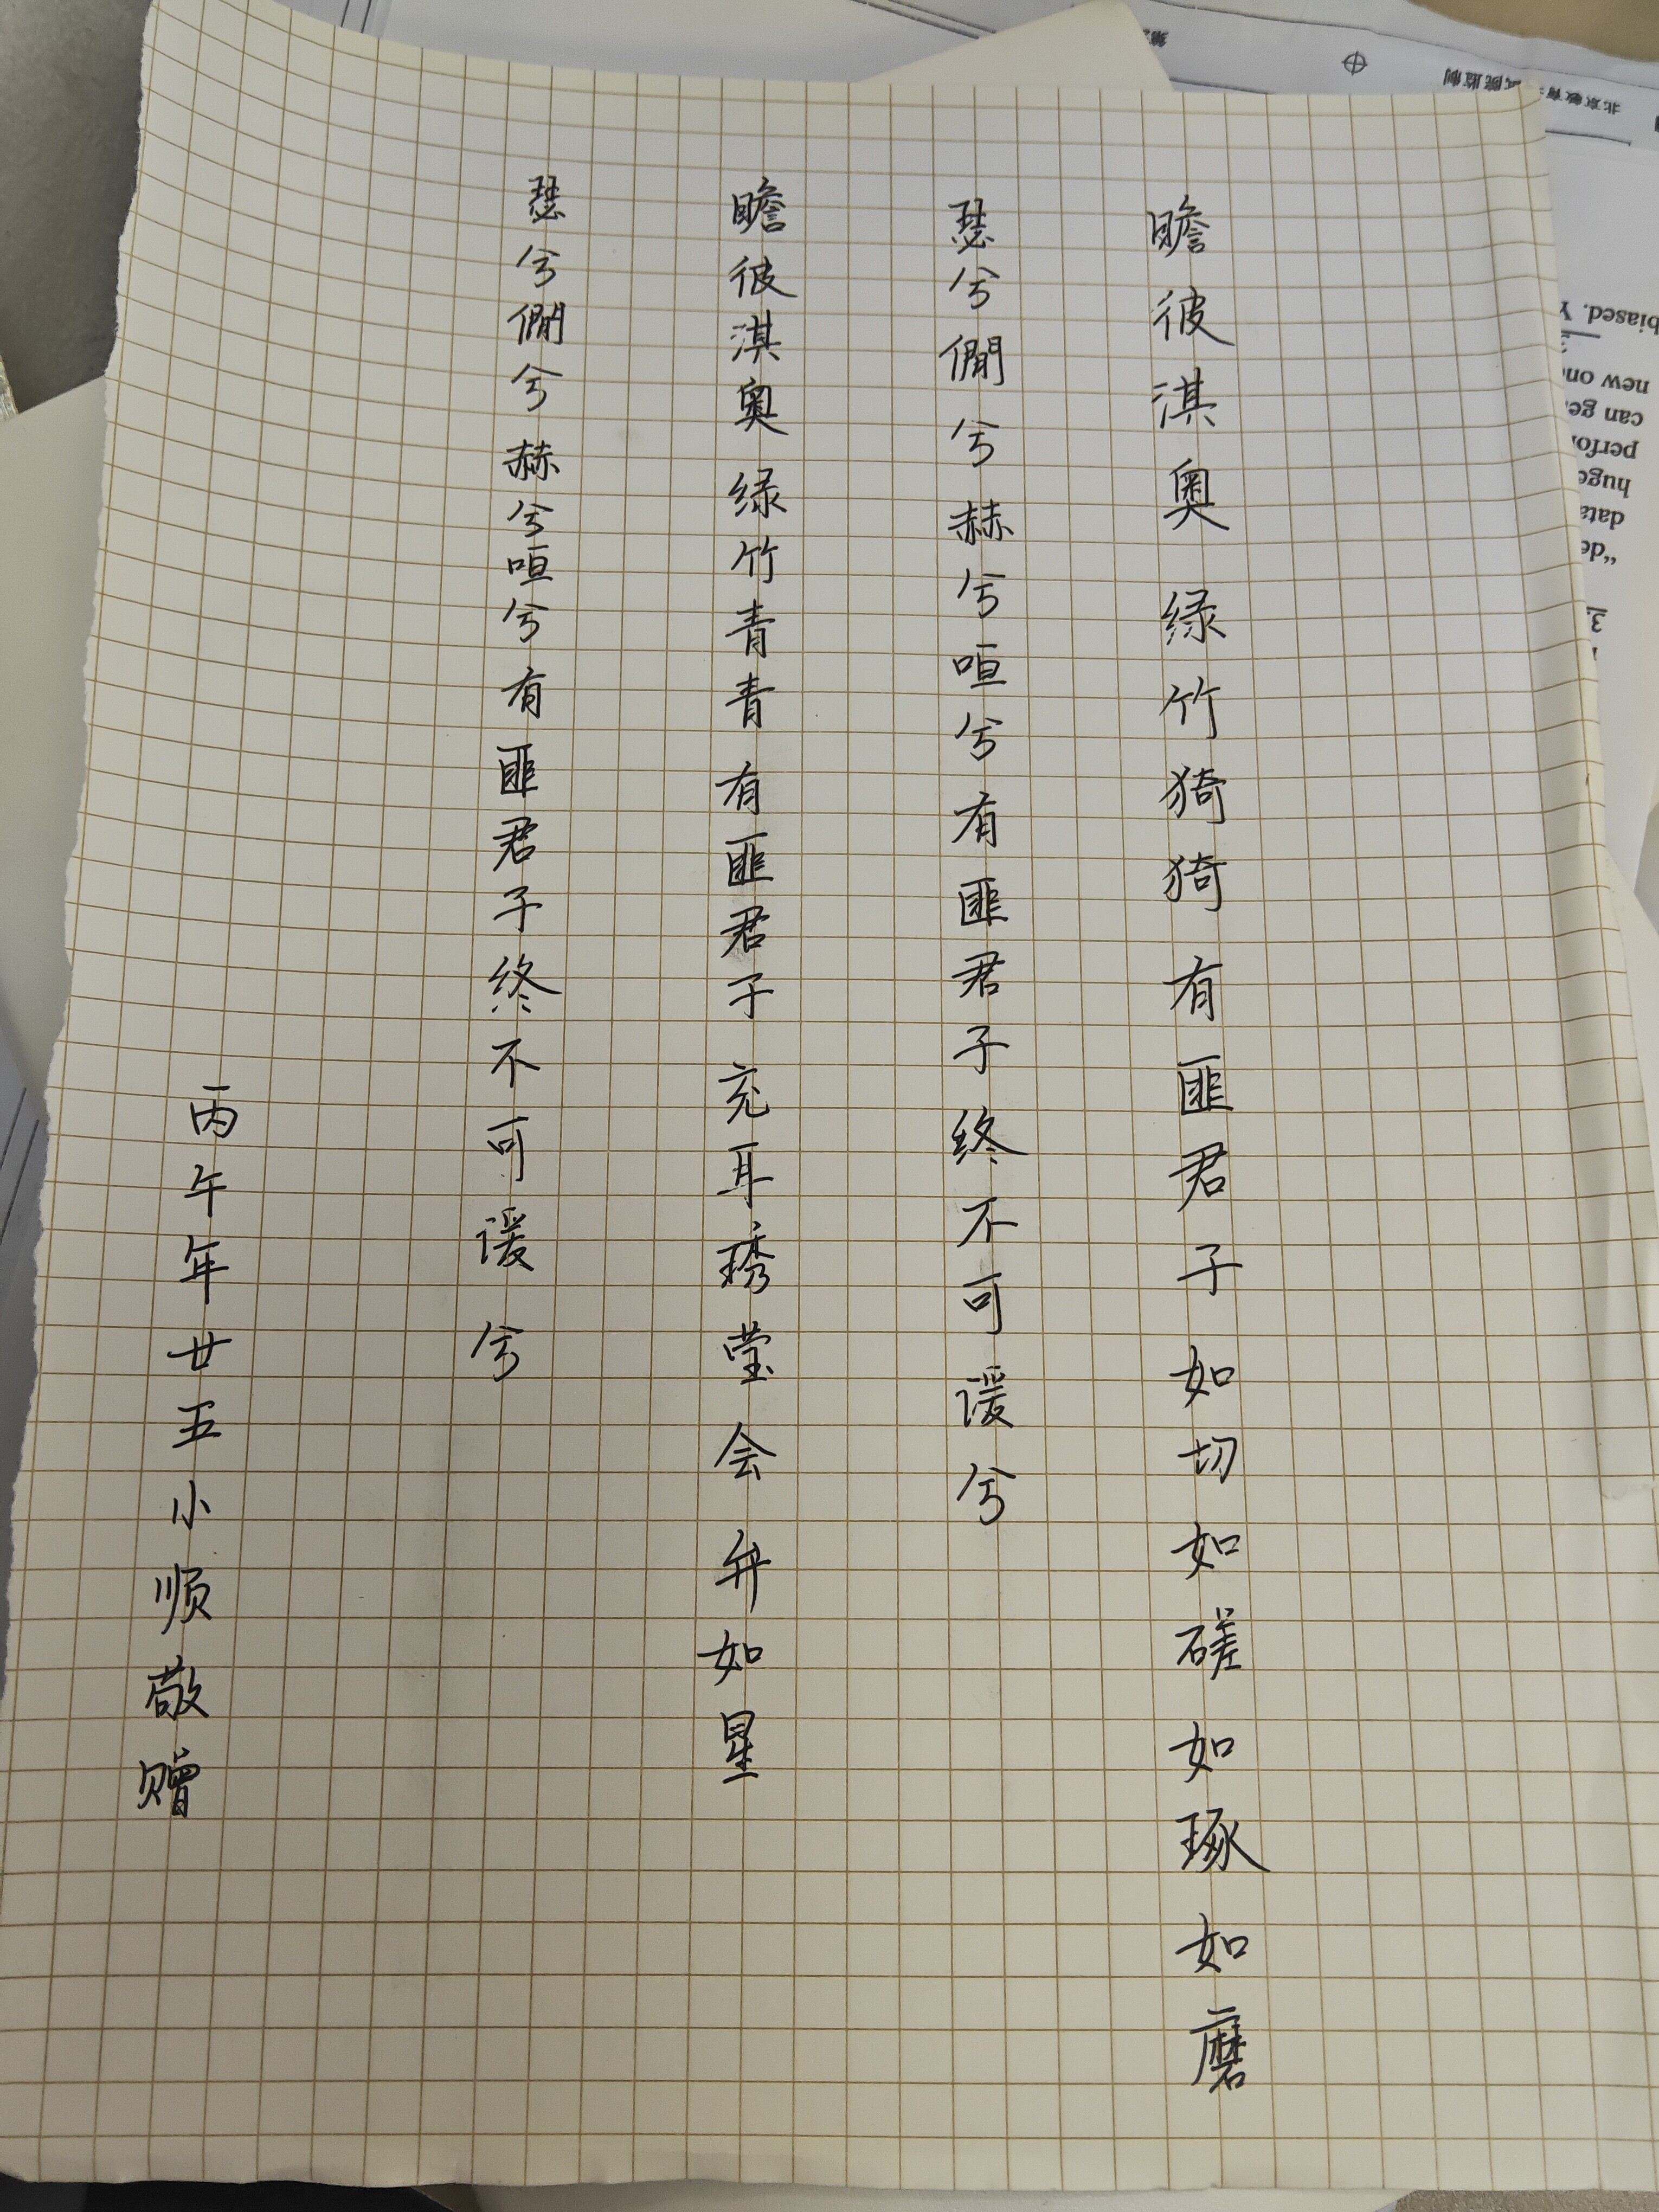 瞻彼淇奥 绿竹猗猗 有匪君子 如切如磋如琢如磨
瑟兮僩兮赫兮咺兮有匪君子终不可谖兮
瞻彼淇奥 绿竹青青 有匪君子 充耳琇莹会弁如星
瑟兮僩兮赫兮咺兮有匪君子终不可谖兮
丙午年廿五小顺敬赠
biased. Y
new on
can ge
perfo
huge
data
"de
3